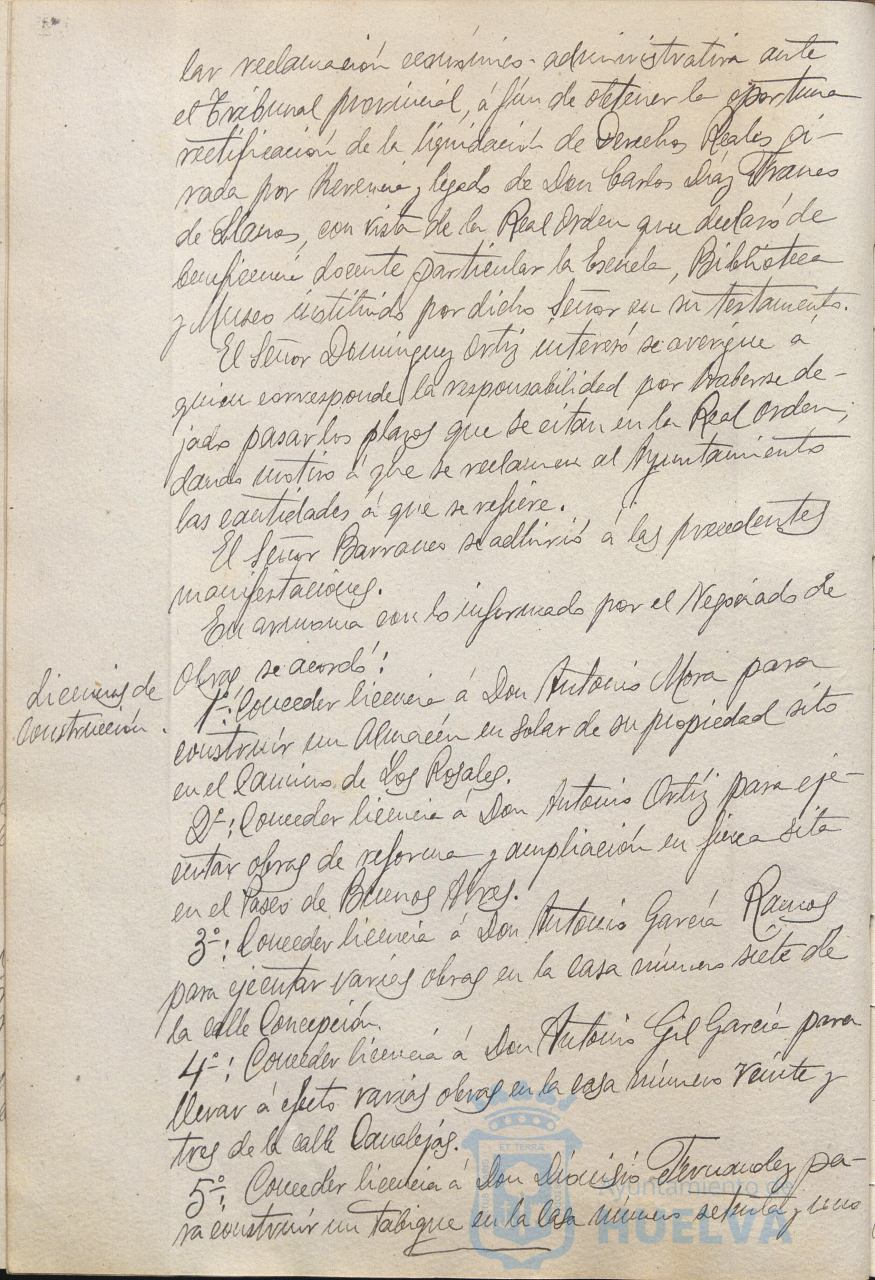 lar reclamación económico-administrativa ante
el Tribunal provincial, á fín de obtener la oportuna
rectificación de la liquidación de Derechos Reales gi-
rada por herencia y legado de Don Carlos Díaz Franco
de Llanos, con vista de la Real Orden que declaró de
beneficencia docente particular la Escuela, Biblioteca
y Museo instituido por dicho Señor en su testamento.
El Señor Domínguez Ortiz interesó se averigüe á
quien corresponde la responsabilidad por haberse de-
jado pasar los plazos que se citan en la Real Orden,
dando motivo á que se reclamen al Ayuntamiento
las cantidades á que se refiere.
El Señor Barranco se adhirió á las precedentes
manifestaciones.
En armonia con lo informado por el Negociado de
Obras, se acordó:
Licencias de
Construcción.
1º: Conceder licencia á Don Antonio Mora para
construir un Almacén en solar de su propiedad sito
en el Camino de Los Rosales.
2º: Conceder licencia á Don Antonio Ortíz para eje-
cutar obras de reforma y ampliación en finca sita
en el Paseo de Buenos Aires.
3º: Conceder licencia á Don Antonio García Ramos
para ejecutar varias obras en la casa número siete de
la calle Concepción.
4º: Conceder licencia á Don Antonio Gil García para
llevar á efecto varias obras en la casa número veinte y
tres de la calle Canalejas.
5º: Conceder licencia á Don Dionisio Fernandez pa-
ra construir un tabique en la casa número setenta y uno
ET TERRA
Ayuntamiento de
HUELVA